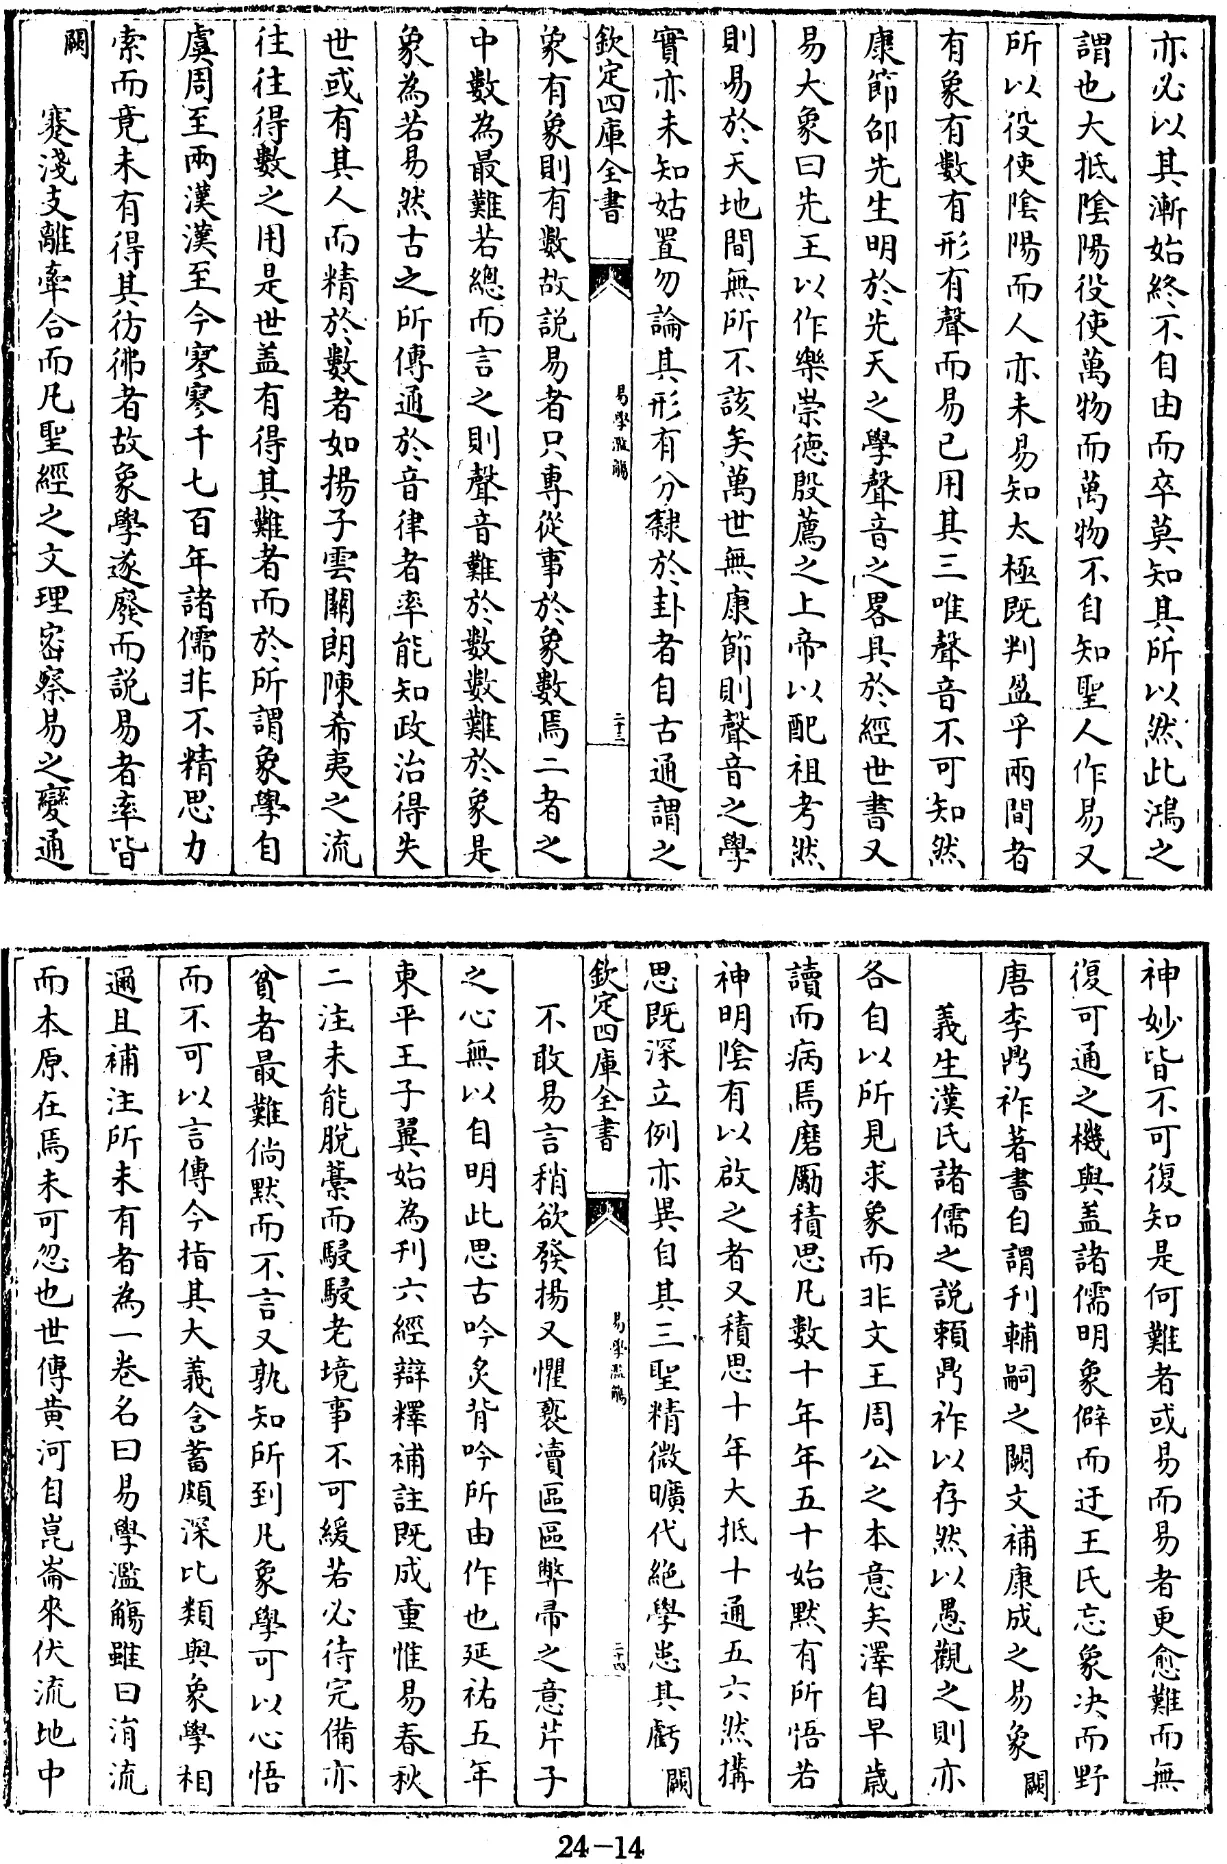 亦必以其漸始終不自由而卒莫知其所以然此鴻之
謂也大抵隂陽役使萬物而萬物不自知聖人作易又
所以役使隂陽而人亦未易知太極既判盈乎兩間者
有象有數有形有聲而易已用其三唯聲音不可知然
康節邵先生明於先天之學聲音之畧具於經世書又
易大象曰先王以作樂崇德殷薦之上帝以配祖考然
則易於天地間無所不該矣萬世無康節則聲音之學
實亦未知姑置勿論其形有分隸於卦者自古通謂之
欽定四庫全書
易學濫觴
二十三
象有象則有數故説易者只專從事於象數焉二者之
中數為最難若總而言之則聲音難於數數難於象是
象為若易然古之所傳通於音律者率能知政治得失
世或有其人而精於數者如揚子雲關朗陳希夷之流
往往得數之用是世盖有得其難者而於所謂象學自
虞周至兩漢漢至今寥寥千七百年諸儒非不精思力
索而竟未有得其彷彿者故象學遂廢而説易者率皆
闕蹇淺支離牽合而凡聖經之文理密察易之變通
神妙皆不可復知是何難者或易而易者更愈難而無
復可通之機與盖諸儒明象僻而迂王氏忘象决而野
唐李鼎祚著書自謂刋輔嗣之闕文補康成之易象闕
義生漢氏諸儒之説頼鼎祚以存然以愚觀之則亦
各自以所見求象而非文王周公之本意矣澤自早歲
讀而病焉磨勵積思凡數十年年五十始默有所悟若
神明隂有以啟之者又積思十年大抵十通五六然搆
思既深立例亦異自其三聖精微曠代絶學恚其虧闕
欽定四庫全書
易學濫觴
二十四
不敢易言稍欲發揚又懼褻瀆區區弊帚之意芹子
之心無以自明此思古吟炙背吟所由作也延祐五年
東平王子翼始為刋六經辯釋補註既成重惟易春秋
二注未能脫藁而駸駸老境事不可緩若必待完備亦
貧者最難倘默而不言又孰知所到凡象學可以心悟
而不可以言傳今指其大義含蓄頗深比類與象學相
邇且補注所未有者為一卷名曰易學濫觴雖曰涓流
而本原在焉未可忽也世傳黄河自崑崙來伏流地中
24-14